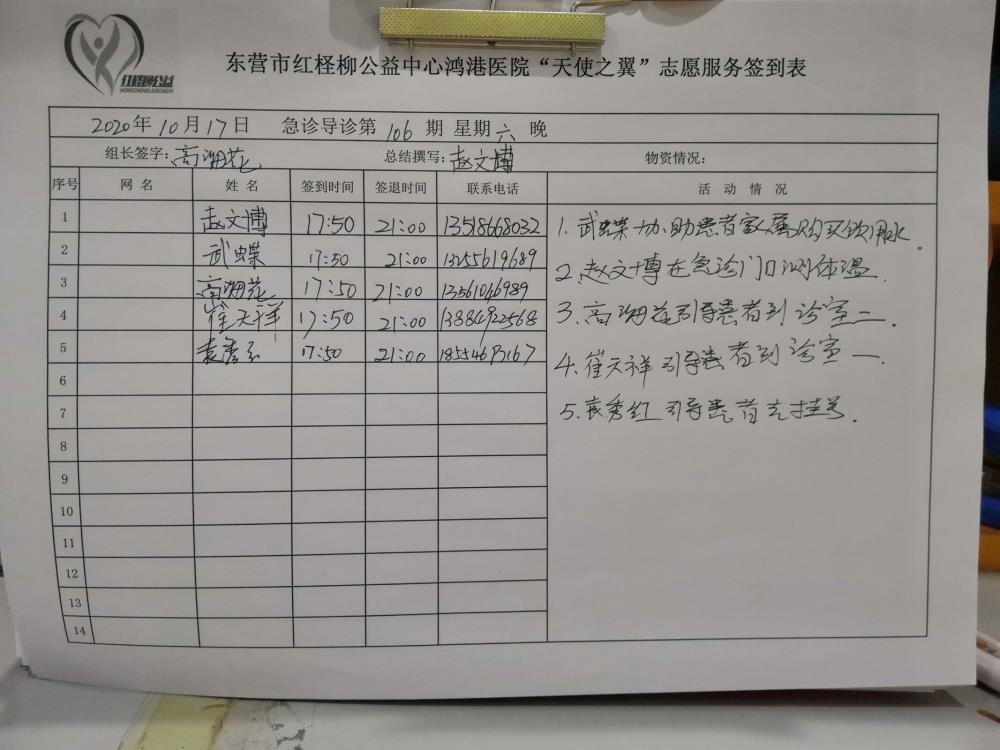 红柽柳公益
HONGCHENGLIUGONGYI
东营市红柽柳公益中心鸿港医院“天使之翼”志愿服务签到表
2020年10月17日 急诊导诊第106期 星期六 晚
组长签字:高海花 总结撰写:赵文博 物资情况:
序号 网名 姓名 签到时间 签退时间 联系电话 活动情况
1 赵文博 17:50 21:00 13518668032
2 武蝶 17:50 21:00 13255619689
3 高海花 17:50 21:00 13561046989
4 崔天祥 17:50 21:00 13884922568
5 袁秀红 17:50 21:00
6
7
8
9
10
11
12
13
14
1.武蝶协助患者家属购买饮用水.
2.赵文博在急诊门口测体温.
3.高海花引导患者到诊室二.
4.崔天祥引导患者到诊室一.
5.袁秀红引导患者去挂号.